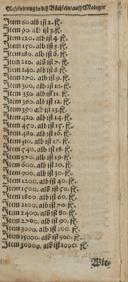 Item 60 alb ist 2. fl.
Item 90 alb ist 3. fl.
Item 120. alb ist 4. fl.
Item 150. alb ist 5. fl.
Item 180. alb ist 6. fl.
Item 210. alb ist 7. fl.
Item 240. alb ist 8. fl.
Item 270. alb ist 9. fl.
Item 300. alb ist 10. fl.
Item 330. alb ist 11. fl.
Item 360. alb ist 12. fl.
Item 390. alb ist 13. fl.
Item 420. alb ist 14. fl.
Item 450. alb ist 15. fl.
Item 480. alb ist 16. fl.
Item 510. alb ist 17. fl.
Item 540. alb ist 18. fl.
Item 570. alb ist 19. fl.
Item 600. alb ist 20. fl.
Item 900. alb ist 30. fl.
Item 1200. alb ist 40. fl.
Item 1500. alb ist 50. fl.
Item 1800. alb ist 60. fl.
Item 2100. alb ist 70. fl.
Item 2400. alb ist 80. fl.
Item 2700. alb ist 90. fl.
Item 3000. alb ist 100. fl.
Item 15000. alb ist 500. fl.
Item 30000. alb ist 1000. fl.
Wie